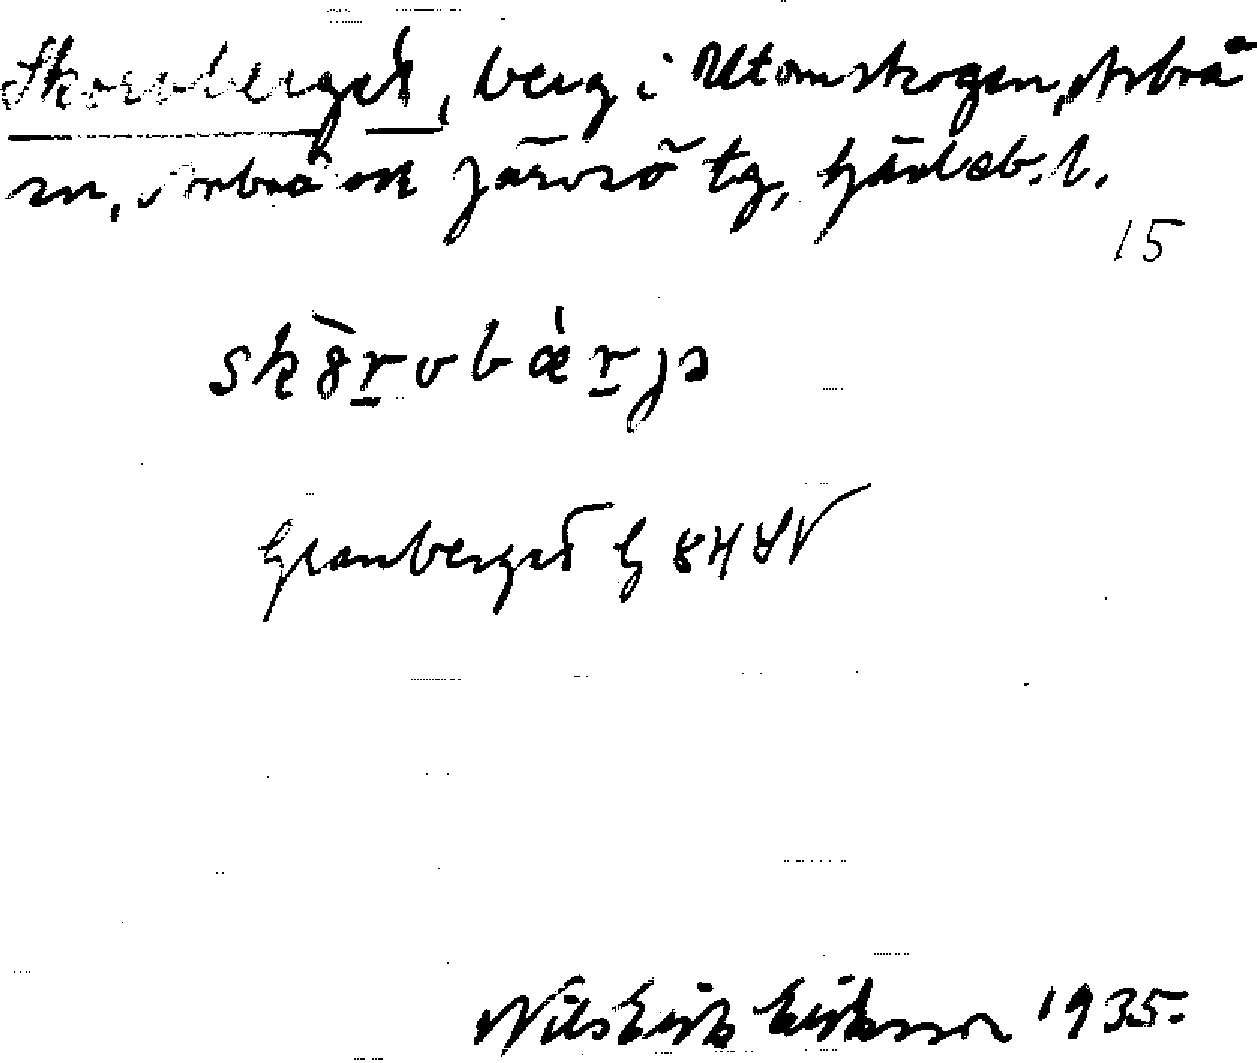 Skorvberget, berg i Utomskogen, Arbrå
sn, Arbrå ock Järvsö tg, Gävleb. l.
15
Granberget G 84
Nils Erik Eriksson 1935.